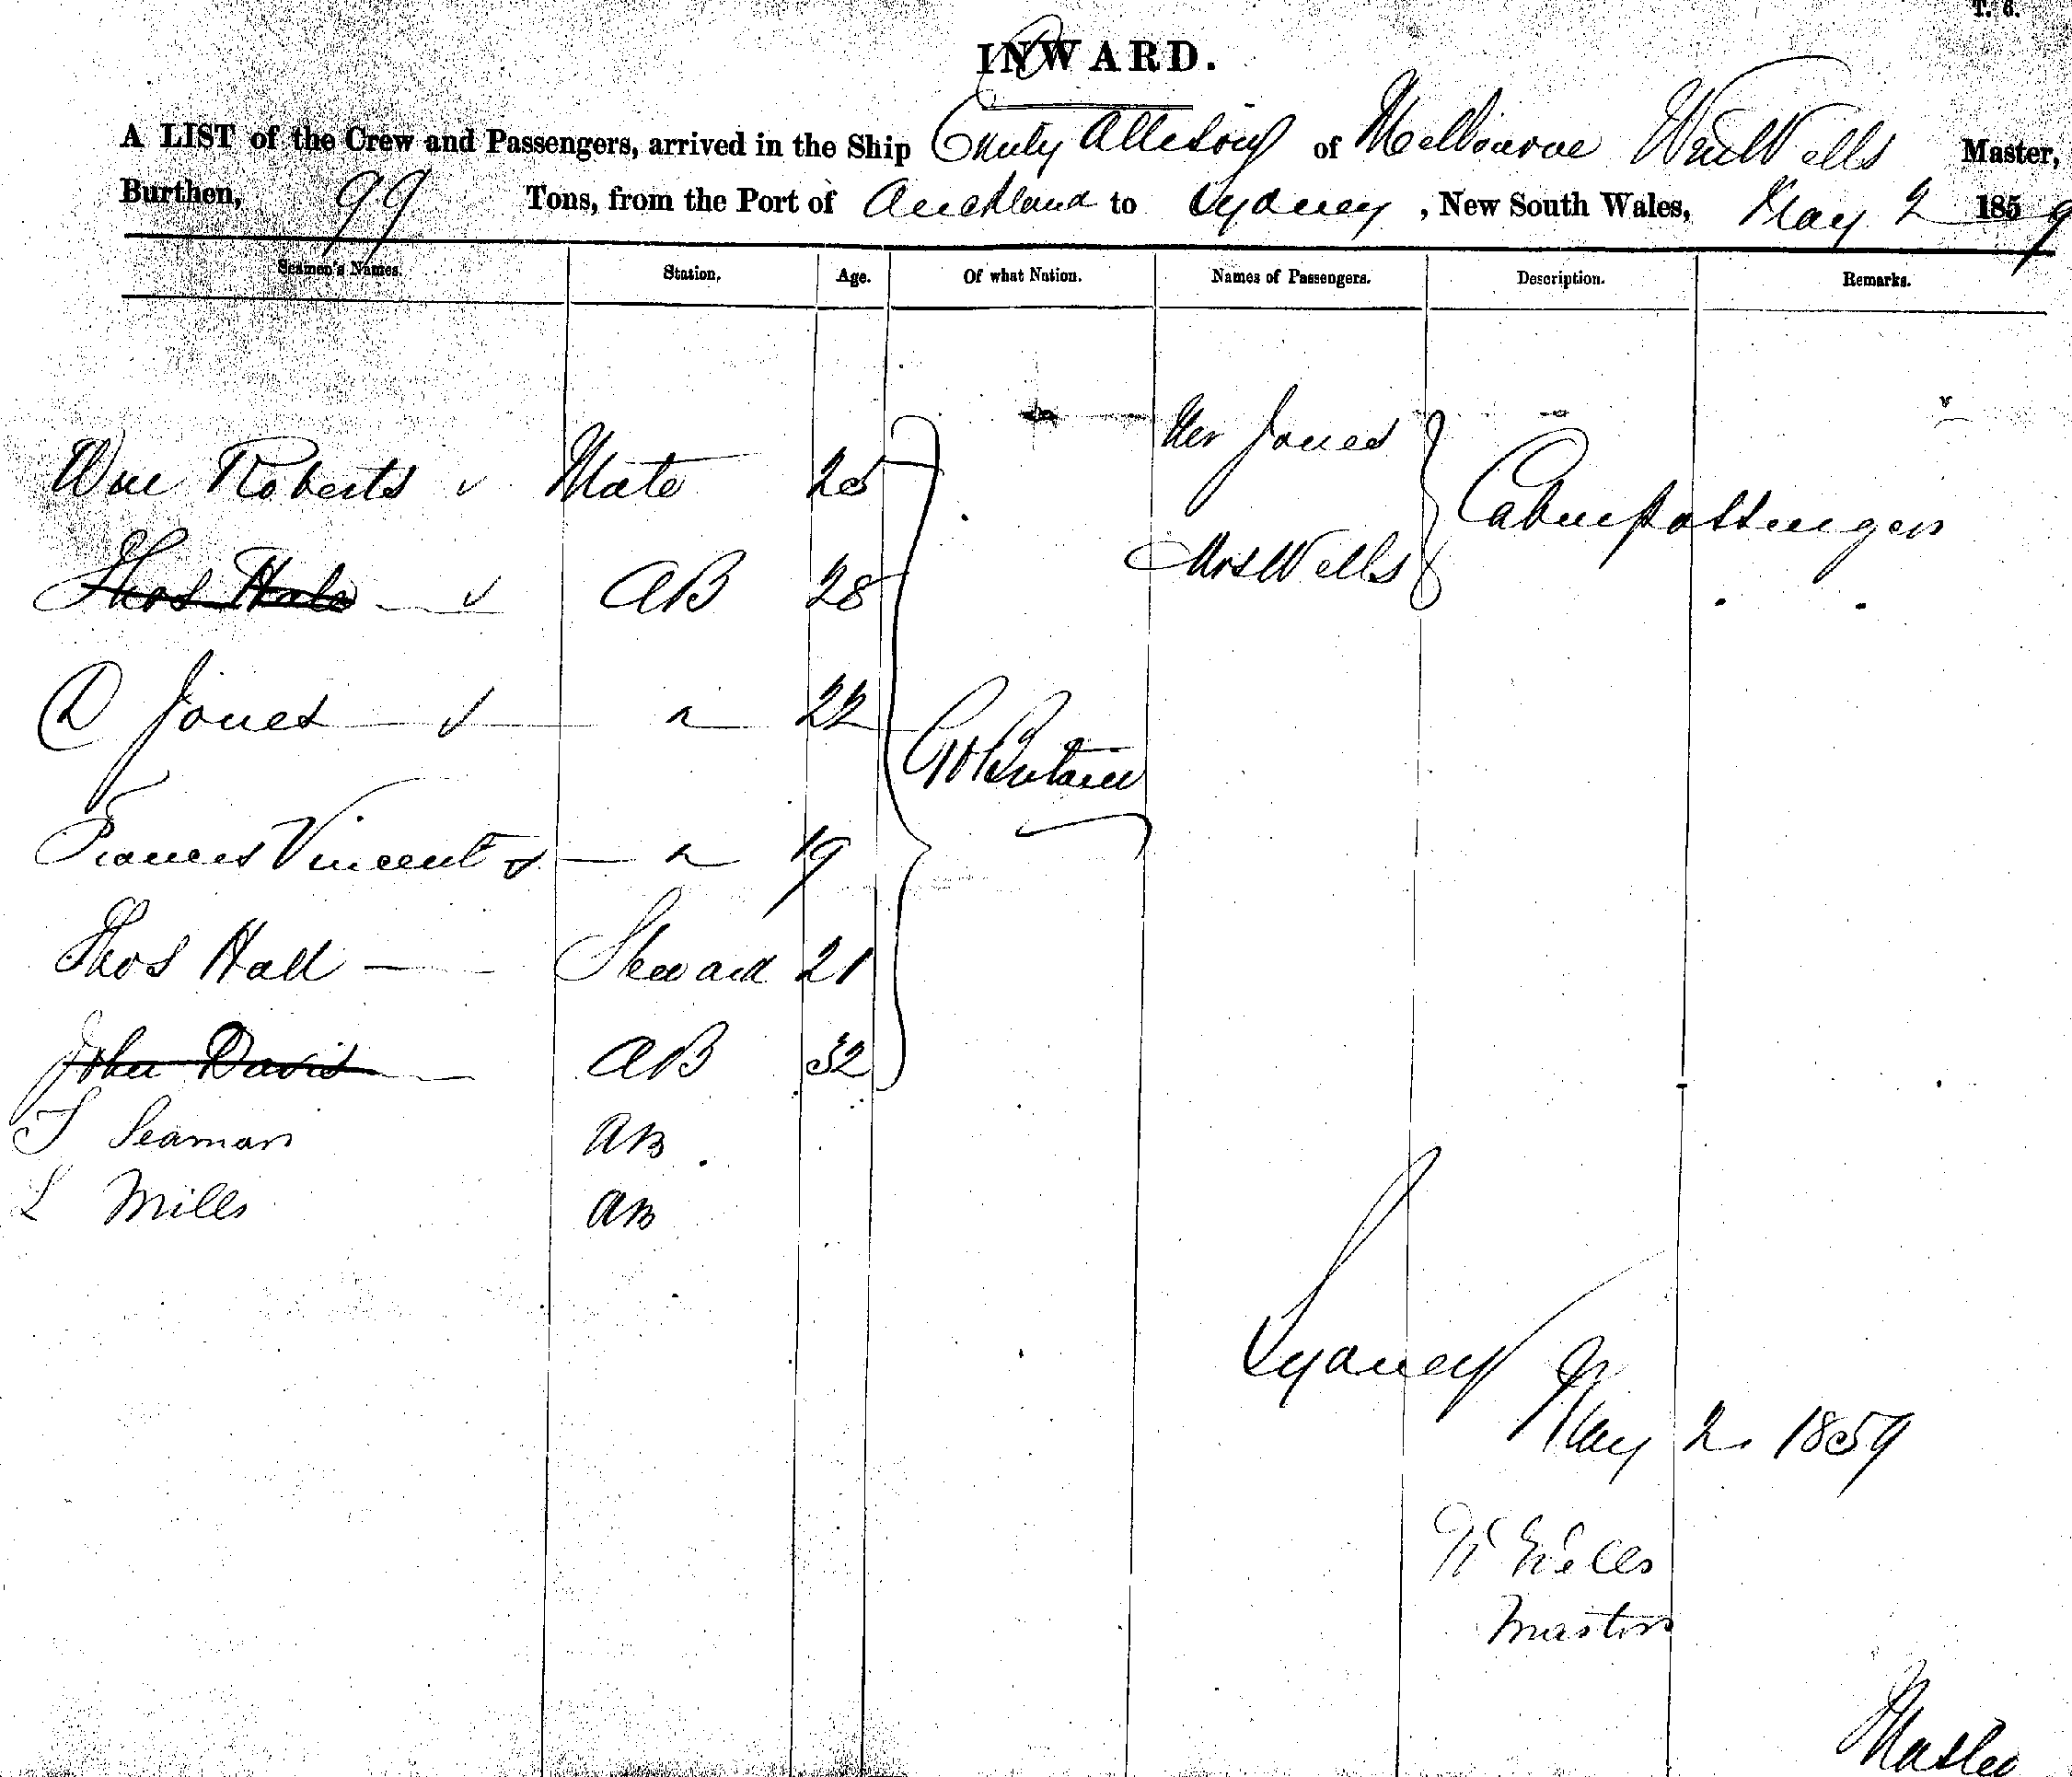 T. 6.
INWARD.
A LIST of the Crew and Passengers, arrived in the Ship Emily Allison of Melbourne Wm Wells Master,
Burthen, 99 Tons, from the Port of Auckland to Sydney, New South Wales, May 2 1859
Seamen's Names. Station. Age. Of what Nation. Names of Passengers. Description. Remarks.
Mr Jones
Wm Roberts Mate 25 Cabin passengers
Thos AB 28 Mrs Wells
D Jones " 22 Gt Britain
Frances Vincent " 19
Thos Hall Steward 21
John Davis AB 32
T Seaman AB
L Mills AB
Sydney
May 2. 1859
W Wells
Master
Master